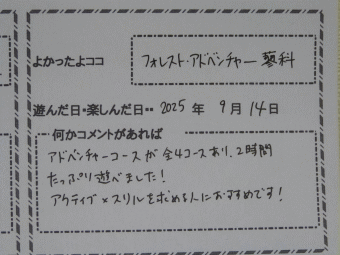 よかったよココ フォレスト・アドベンチャー 蓼科
遊んだ日・楽しんだ日・・ 2025 年 9 月 14 日
何かコメントがあれば
アドベンチャーコースが全4コースあり、2時間
たっぷり遊べました!
アクティブ×スリルを求める人におすすめです!